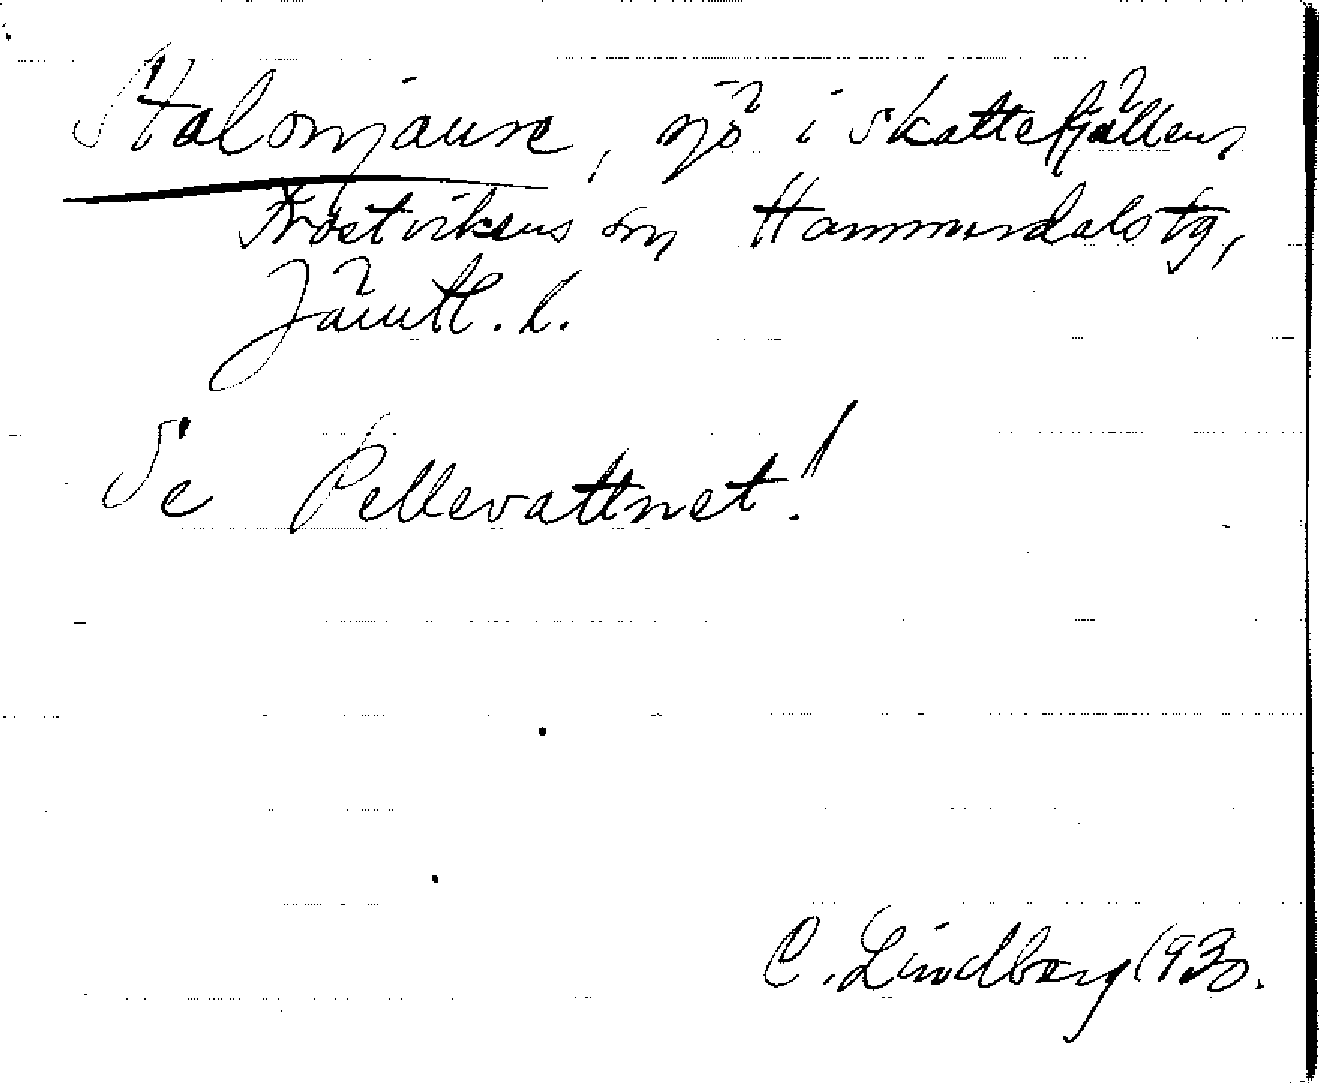 Stalonjaure, sjö i skattefjällen,
Frostvikens sn, Hammerdals tg,
Jämtl. l.
Se Pellevattnet!
C. Lindberg 1930.